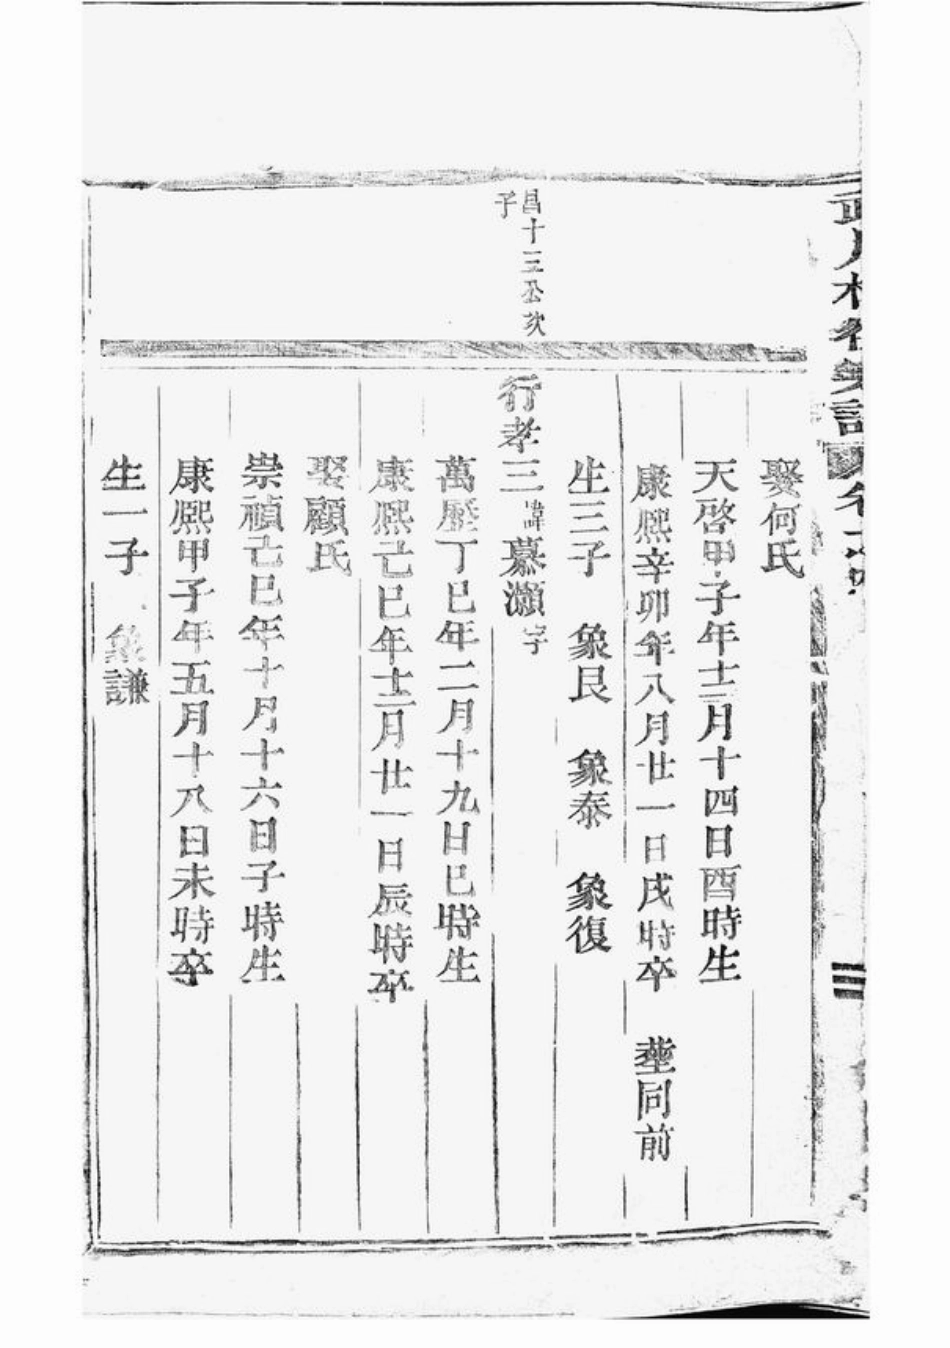 娶何氏
天啓甲子年十二月十四日酉時生
康熙辛卯年八月廿一日戌時卒 塟同前
生三子 象艮 象泰 象復
昌十三公次子
行孝三諱慕瀬字
萬曆丁巳年二月十九日巳時生
康熙己巳年十二月廿一日辰時卒
娶顧氏
崇禎己巳年十月十六日子時生
康熙甲子年五月十八日未時卒
生一子 象謙